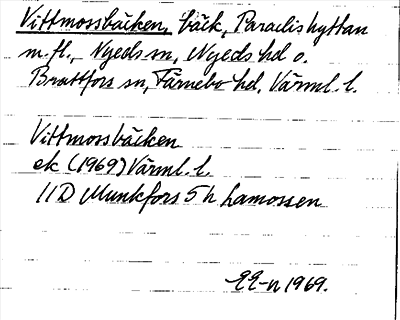 Vittmossbäcken, bäck, Paradishyttan
m.fl., Nyeds sn, Nyeds hd o.
Brattfors sn, Färnebo hd, Värml. l.
Vittmossbäcken
ek (1969) Värml. l.
11D Munkfors 5 h Lamossen
1969.